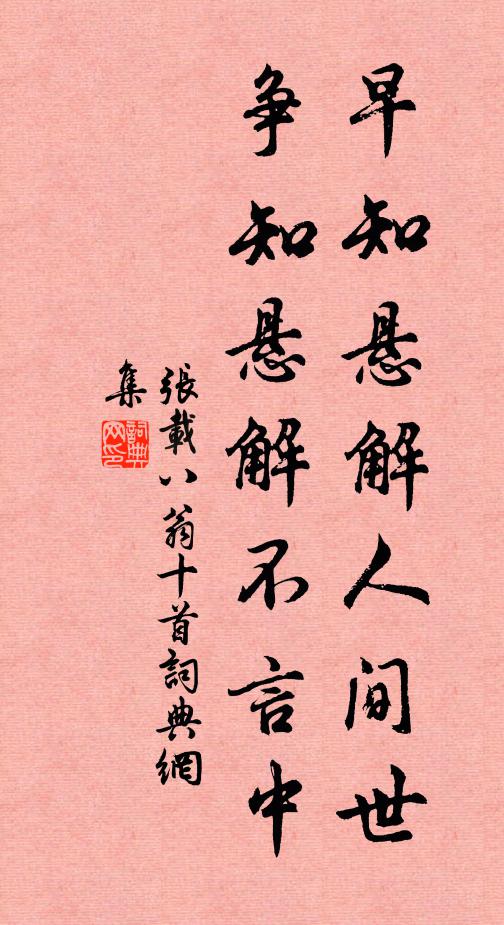 早知悬解人间世
争知悬解不言中
張載八翁十首詞典網
集
詞典
网印